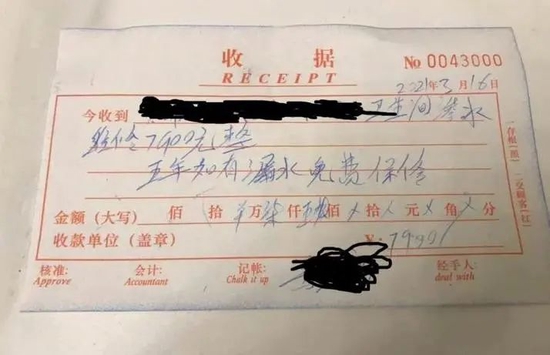 收据
RECEIPT
No 0043000
2021年3月16日
今收到 卫生间渗水
维修7900元整
五年如有漏水免费保修
金额（大写） 佰 拾 万 柒 仟 佰 拾 元 角 分
收款单位（盖章） ¥：7900
核准： 会计： 记帐： 经手人：
Approve Accountant Chalk it up deal with
一存根（黑） 二交顾客（红）